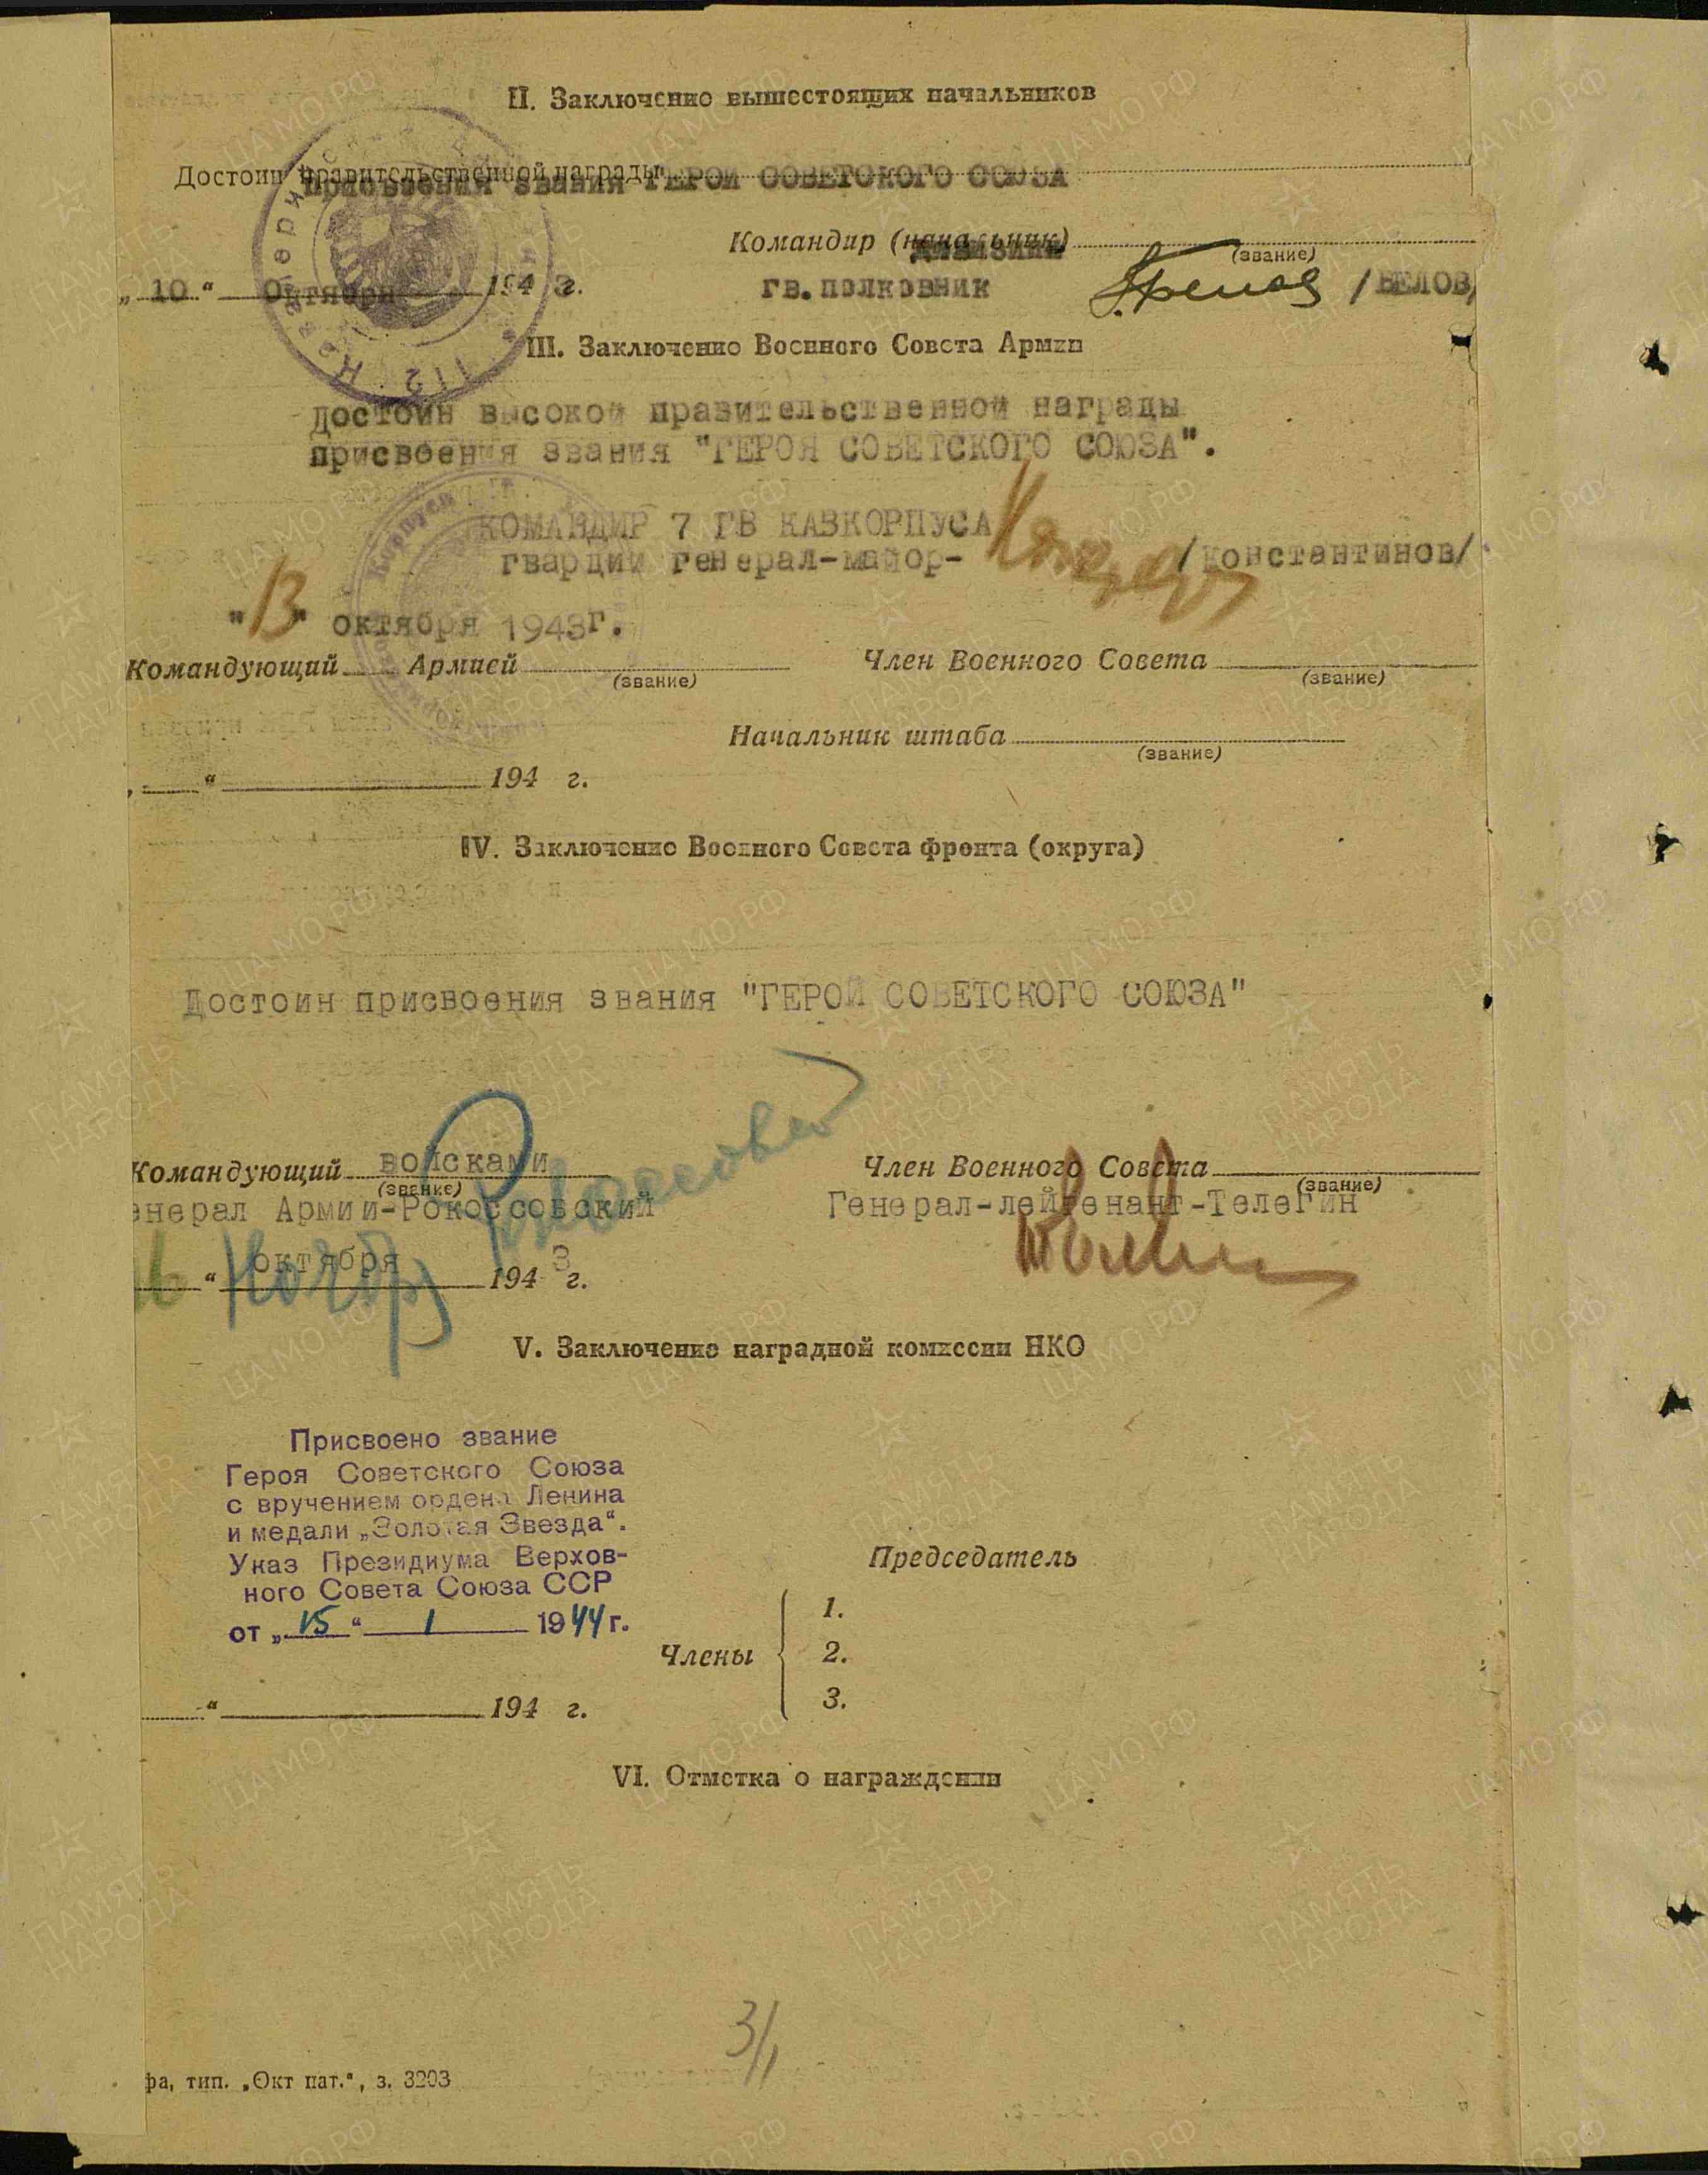 II. Заключение вышестоящих начальников
Достоин правительственной награды
присвоения звания ГЕРОЯ СОВЕТСКОГО СОЮЗА
Командир (начальник)
дивизии
(звание)
„ 10 “ Октября 1943 г.
гв. полковник /БЕЛОВ/
III. Заключение Военного Совета Армии
Достоин высокой правительственной награды
присвоения звания "ГЕРОЯ СОВЕТСКОГО СОЮЗА".
КОМАНДИР 7 ГВ КАВКОРПУСА
гвардии генерал-майор- /константинов/
"13" октября 1943г.
Командующий Армией Член Военного Совета
(звание) (звание)
Начальник штаба
(звание)
“ 194 г.
IV. Заключение Военного Совета фронта (округа)
Достоин присвоения звания "ГЕРОЙ СОВЕТСКОГО СОЮЗА"
Командующий войсками Член Военного Совета
(звание) (звание)
енерал Армии-Рокоссовский Генерал-лейтенант-Телегин
“ октября 1943 г.
V. Заключение наградной комиссии НКО
Присвоено звание
Героя Советского Союза
с вручением ордена Ленина
и медали „Золотая Звезда“.
Указ Президиума Верхов-
ного Совета Союза ССР
от „15“ 1 1944 г.
Председатель
Члены
1.
2.
3.
“ 194 г.
VI. Отметка о награждении
3/1
фа, тип. „Окт пат.“, з. 3203
ЦАМО.РФ
ПАМЯТЬ
НАРОДА